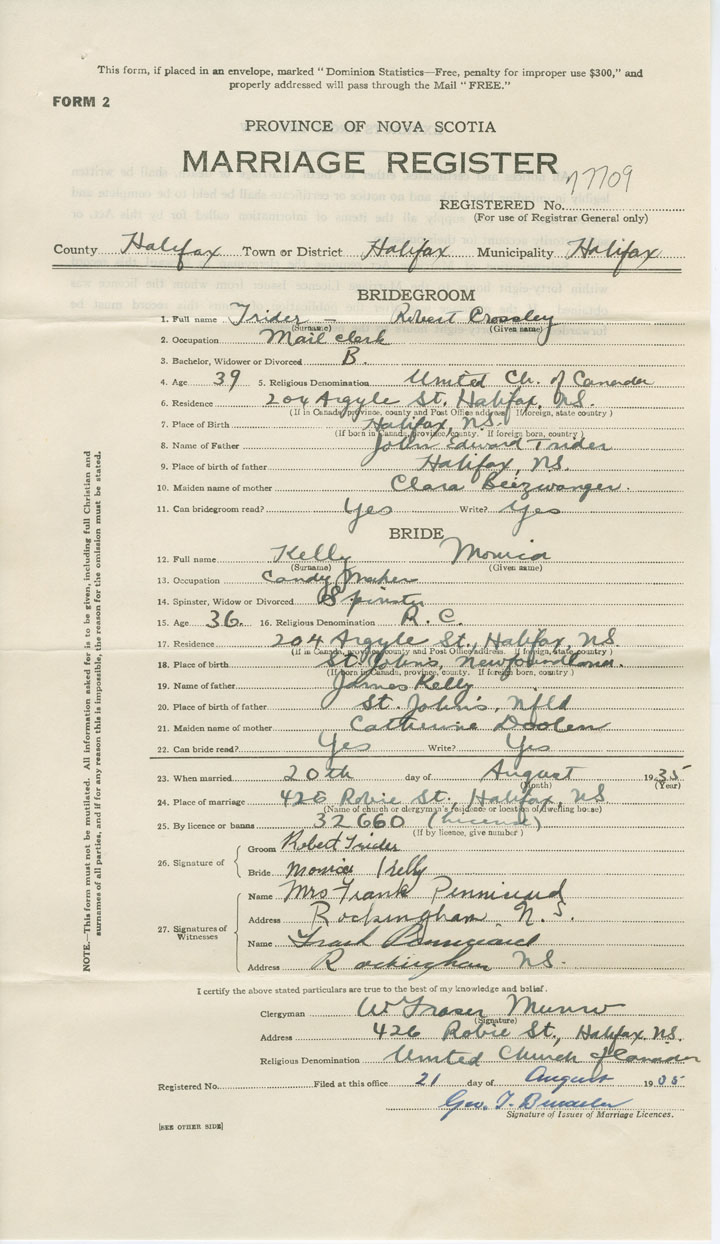 This form, if placed in an envelope, marked "Dominion Statistics—Free, penalty for improper use $300," and
properly addressed will pass through the Mail "FREE."
FORM 2
PROVINCE OF NOVA SCOTIA
MARRIAGE REGISTER
REGISTERED No. 77709
(For use of Registrar General only)
County Halifax Town or District Halifax Municipality Halifax
BRIDEGROOM
1. Full name Trider — Robert Crossley
(Surname) (Given name)
2. Occupation Mail clerk
3. Bachelor, Widower or Divorced B.
4. Age 39 5. Religious Denomination United Ch. of Canada
6. Residence 204 Argyle St. Halifax, N.S.
(If in Canada, province, county and Post Office address. If foreign, state country)
7. Place of Birth Halifax, N.S.
(If born in Canada, province, county. If foreign born, country)
8. Name of Father John Edward Trider
9. Place of birth of father Halifax, N.S.
10. Maiden name of mother Clara Beizwanger.
11. Can bridegroom read? Yes Write? Yes
BRIDE
12. Full name Kelly Monica
(Surname) (Given name)
13. Occupation Candy Maker
14. Spinster, Widow or Divorced Spinster
15. Age 36. 16. Religious Denomination R. C.
17. Residence 204 Argyle St., Halifax, N.S.
(If in Canada, province, county and Post Office address. If foreign, state country)
18. Place of birth St. Johns, Newfoundland.
(If born in Canada, province, county. If foreign born, country)
19. Name of father James Kelly
20. Place of birth of father St. John's, Nfld
21. Maiden name of mother Catherine Doolen
22. Can bride read? Yes Write? Yes
23. When married 20th day of August 1935
(Month) (Year)
24. Place of marriage 426 Robie St., Halifax, NS
(Name of church or clergyman's residence or location of dwelling house)
25. By licence or banns 32660 (License)
(If by licence, give number)
26. Signature of
Groom Robert Trider
Bride Monica Kelly
27. Signatures of Witnesses
Name Mrs Frank
Address Rockingham N. S.
Name Frank
Address Rockingham NS.
I certify the above stated particulars are true to the best of my knowledge and belief.
Clergyman W Fraser Munro
(Signature)
Address 426 Robie St., Halifax. N.S.
Religious Denomination United Church of Canada
Registered No. Filed at this office 21 day of August 1935
Geo. T.
Signature of Issuer of Marriage Licences.
[SEE OTHER SIDE]
NOTE.—This form must not be mutilated. All information asked for is to be given, including full Christian and
surnames of all parties, and if for any reason this is impossible, the reason for the omission must be stated.